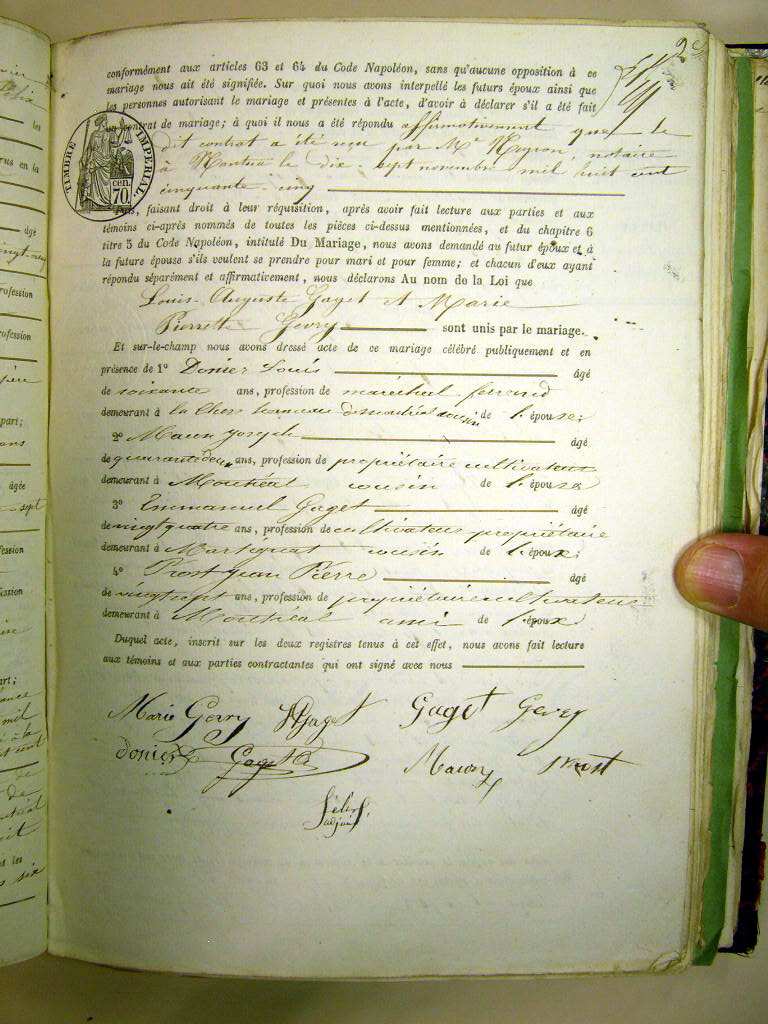 conformément aux articles 63 et 64 du Code Napoléon, sans qu'aucune opposition à ce
mariage nous ait été signifiée. Sur quoi nous avons interpellé les futurs époux ainsi que
les personnes autorisant le mariage et présentes à l'acte, d'avoir à déclarer s'il a été fait
un contrat de mariage; à quoi il nous a été répondu affirmativement que le
dit contrat a été reçu par Me notaire
à Nantua le dix-sept novembre mil huit cent
cinquante-cinq
TIMBRE IMPÉRIAL
cen. 70
faisant droit à leur réquisition, après avoir fait lecture aux parties et aux
témoins ci-après nommés de toutes les pièces ci-dessus mentionnées, et du chapitre 6
titre 5 du Code Napoléon, intitulé Du Mariage, nous avons demandé au futur époux et à
la future épouse s'ils veulent se prendre pour mari et pour femme; et chacun d'eux ayant
répondu séparément et affirmativement, nous déclarons Au nom de la Loi que
Louis-Auguste Gaget et Marie
Pierrette Gevry sont unis par le mariage.
Et sur-le-champ nous avons dressé acte de ce mariage célébré publiquement et en
présence de 1° Donier Louis âgé
de soixante ans, profession de maréchal ferrand
demeurant à hameau cousin de l'épouse;
2° Joseph âgé
de quarante deux ans, profession de propriétaire cultivateur
demeurant à Montréal cousin de l'épouse
3° Emmanuel Gaget âgé
de vingt quatre ans, profession de cultivateur propriétaire
demeurant à Martignat cousin de l'époux;
4° Prost Jean Pierre âgé
de vingt sept ans, profession de propriétaire cultivateur
demeurant à Montréal ami de l'époux
Duquel acte, inscrit sur les deux registres tenus à cet effet, nous avons fait lecture
aux témoins et aux parties contractantes qui ont signé avec nous
Marie Gevry Gaget Gaget Gevry
donier Gaget Prost
adjoint